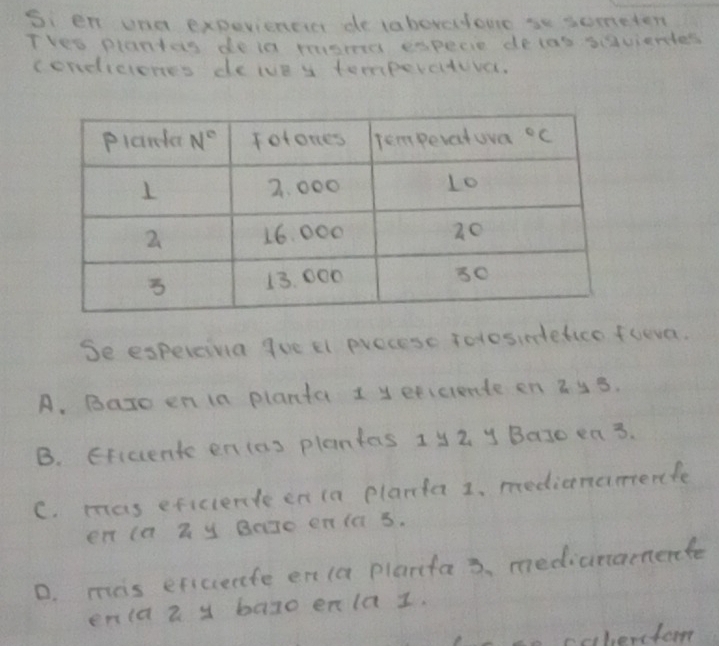 Si en una experiencia de laboratorio se someten
Tres plantas de la misma especie de las siguientes
condiciones de luz y temperatura.
Planta N° Fotones Temperatura °C
1 2.000 10
2 16.000 20
3 13.000 30
Se esperaria que el proceso fotosintetico fuera.
A. Bajo en la planta 1 y eficiente en 2 y 3.
B. Eficiente en las plantas 1 y 2 y Bajo en 3.
C. mas eficiente en la planta 1. medianamente
en la 2 y Bajo en la 3.
D. mas eficiente en la planta 3. medianamente
en la 2 y bajo en la 1.